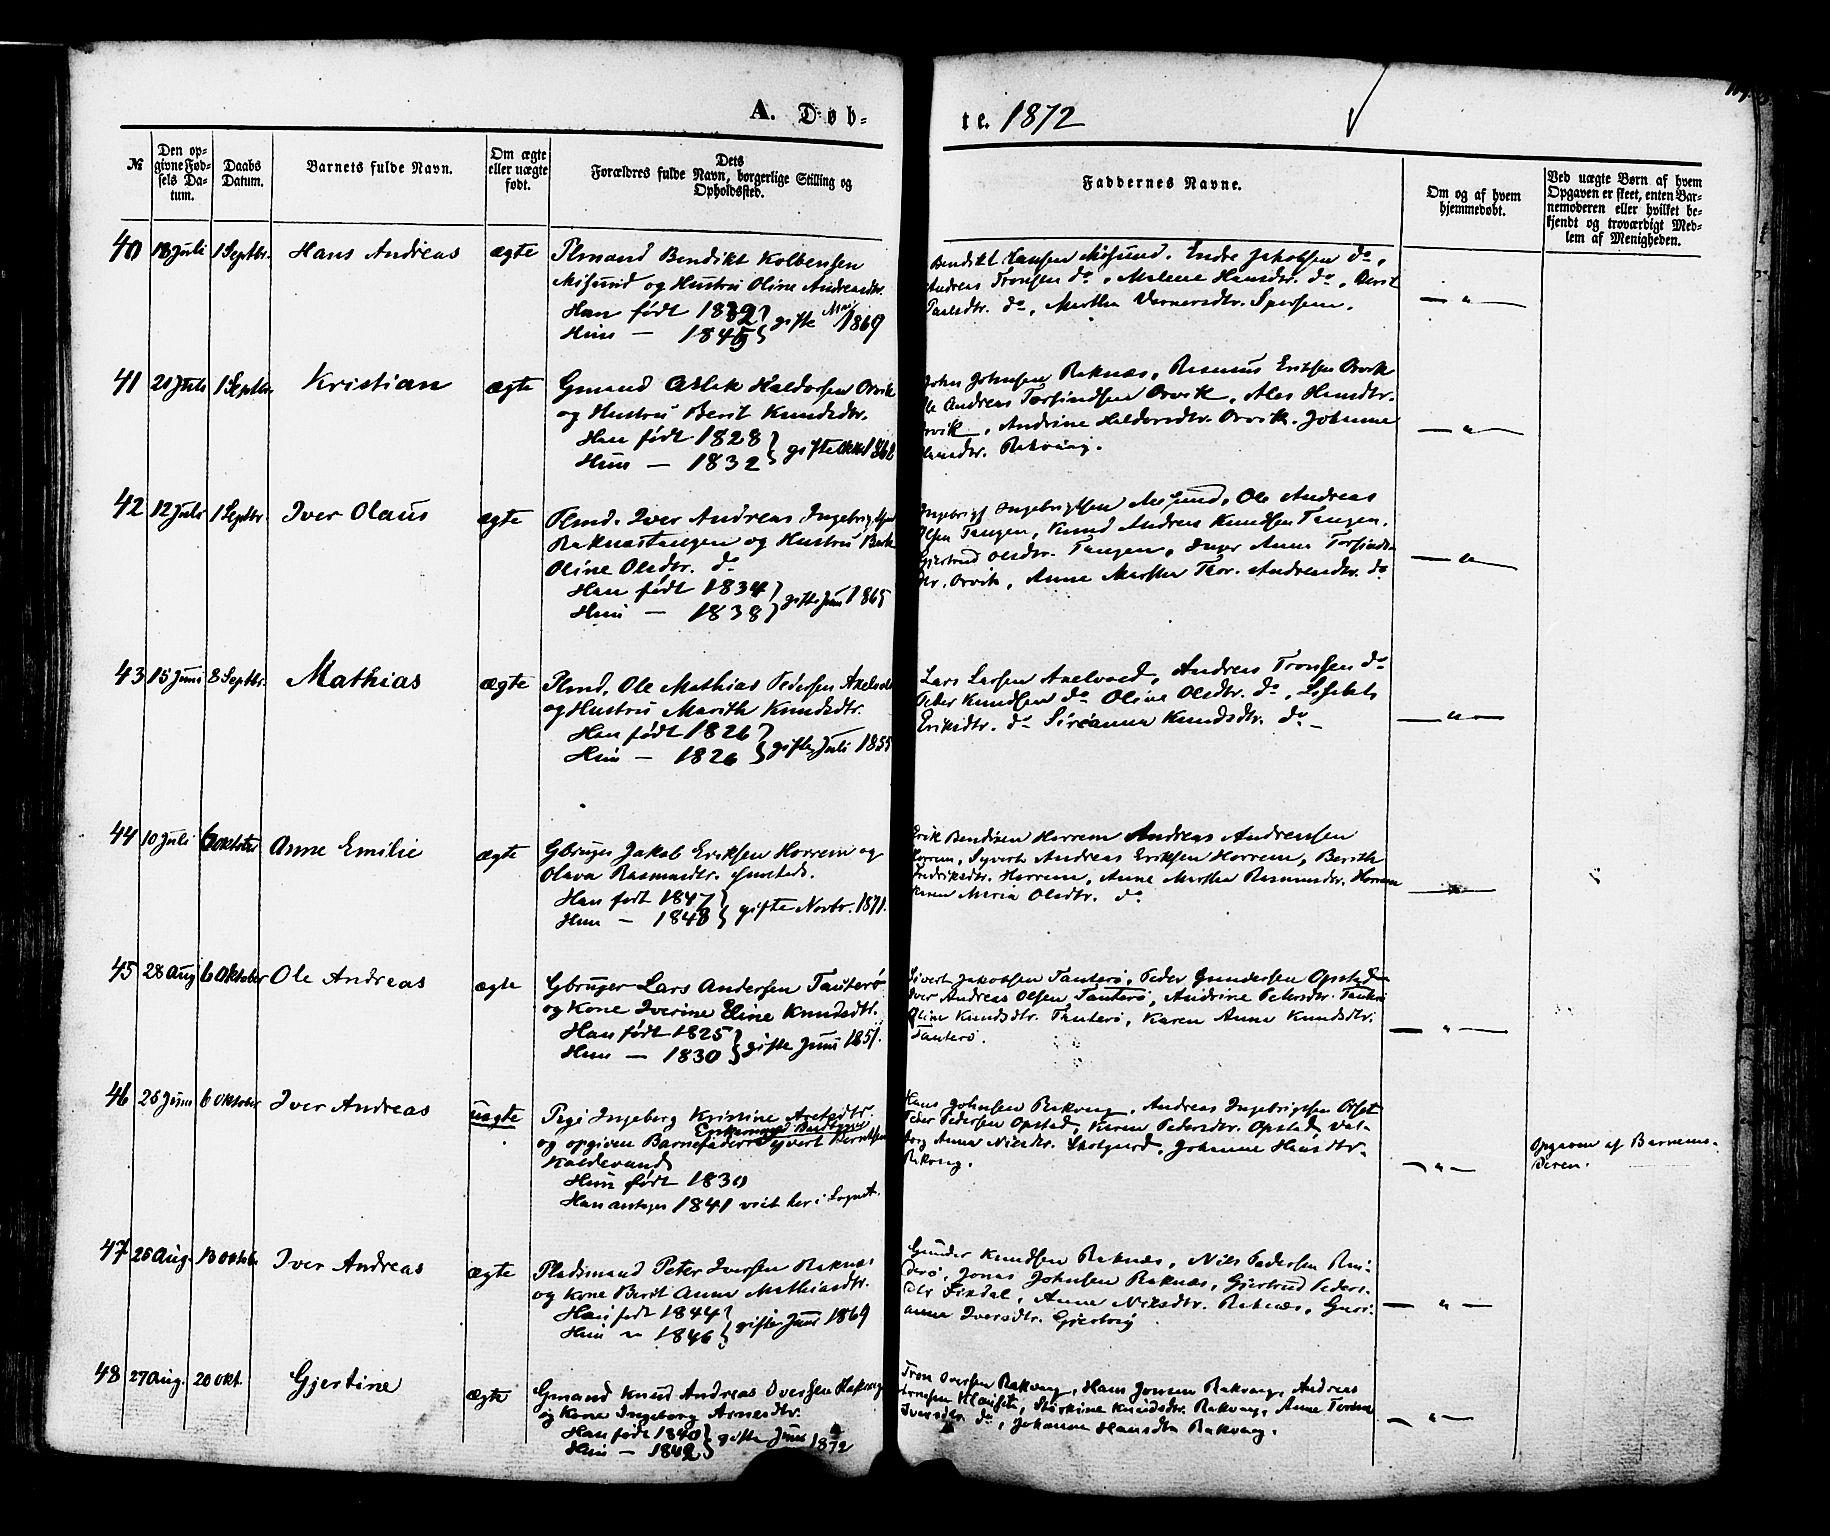 A. Døb-
te. 1872
№
Den op-
givne Fød-
sels Da-
tum.
Daabs
Datum.
Barnets fulde Navn.
Om ægte
eller uægte
født.
Dets
Forældres fulde Navn, borgerlige Stilling og
Opholdssted.
Faddernes Navne.
Om og af hvem
hjemmedøbt.
Ved uægte Børn af hvem
Opgaven er skeet, enten Bar-
nemoderen eller hvilket be-
kjendt og troværdigt Med-
lem af Menigheden.
40 18 Juli 1 Septbr. Hans Andreas ægte Plmand Bendikt Kolbensen
Misund og Hustru Oline Andreasdtr.
Han født 1832 } gifte Mai 1869
Hun — 1845
Bendikt Hansen Misund. Endre Jakobsen do,
Andreas Tronsen do, Malene Hansdtr. do, Berit
Paulsdtr. do, Martha Varnersdtr.
— " —
41 21 Juli 1 Septbr. Kristian ægte Gmand Aslak Haldorsen Orvik
og Hustru Berit Knudsdtr.
Han født 1828 } gifte
Hun — 1832
John Johnsen Raknæs, Rasmus Eriksen Orvik
Andreas Torfindsen Orvik,
Orvik, Andrine Haldorsdtr. Orvik. Johanne
Rakvaag.
— " —
42 12 Juli 1 Septbr. Iver Olaus ægte Plmd. Iver Andreas
Raknæstangen og Hustru
Oline Olsdtr. do
Han født 1834 } gifte Juni 1865
Hun — 1838
Ingebrigt Ingebrigtsen Misund, Ole Andreas
Olsen Tangen, Knud Andreas Knudsen Tangen,
Gjertrud Olsdtr. Tangen, Inger Anna
dtr. Orvik, Anne Martha Thor. Andreasdtr. do
— " —
43 15 Juni 8 Septbr. Mathias ægte Plmd. Ole Mathias Pedersen
og Hustru Marith Knudsdtr.
Han født 1826 } gifte Juli 1855
Hun — 1826
Lars Larsen Axelvoed, Andreas Tronsen do
Peter Knudsen do Oline Olsdtr. do,
Eriksdtr. do Sirianna Knudsdtr. do —
— " —
44 10 Juli 6 Oktober Anne Emilie ægte Gbruger Jakob Eriksen Horrem og
Olava Rasmusdtr. smsteds.
Han født 1847 } gifte Novbr. 1871.
Hun — 1848
Erik Bendixen Horrem Andreas Andreassen
Horrem, Syvert Andreas Eriksen Horrem, Berith
Fredriksdtr. Horrem, Anne Martha Rasmusdtr. Horrem
Karen Maria Olsdtr. do
45 28 Aug 6 Oktober Ole Andreas ægte Gbruger Lars Andersen Tauterø
og Kone Iverine Eline Knudsdtr.
Han født 1825 } gifte Juni 1851.
Hun — 1830
Sivert Jakobsen Tauterø, Peder Gundersen Opstad
Iver Andreas Olsen Tauterø, Andrine Petersdtr.
Oline Knudsdtr. Tauterø, Karen Anne Knudsdtr.
Tauterø.
— " —
46 25 Juni 6 Oktober Iver Andreas uægte Pige Ingeborg Kristine
og opgiven Barnefader Syvert Berntsen
Koldevand
Hun født 1830
Han antages 1841 viet her i Sognet.
Hans Johnsen Rakvaag, Andreas Ingebrigtsen
Peder Pedersen Opstad, Karen Pedersdtr. Opstad
Anna Nilsdtr. Johanne Hansdtr.
Rakvaag.
— " —
Opgaven af Barnemo-
deren.
47 25 Aug. 13 Oktob. Iver Andreas ægte Pladsmand Peter Iversen Raknæs
og Kone Berit Anna Mathiasdtr.
Han født 1844 } gifte Juni 1869
Hun " 1846
Gunder Knudsen Raknæs, Nils Pedersen
Jonas Johnsen Raknæs, Gjertrud Peders-
dtr Anne Nilsdtr. Raknæs,
anna Iversdtr.
— " —
48 27 Aug. 20 Okt. Gjertine ægte Gmand Knud Andreas Iversen Rakvaag
og Kone Ingeborg Arnesdtr.
Han født 1840 } gifte Juni 1872
Hun — 1842
Tron Iversen Rakvaag, Hans Jonsen Rakvaag, Andreas
Knudsdtr. Rakvaag, Anne
Iversdtr. do, Johanna Hansdtr Rakvaag.
— " —